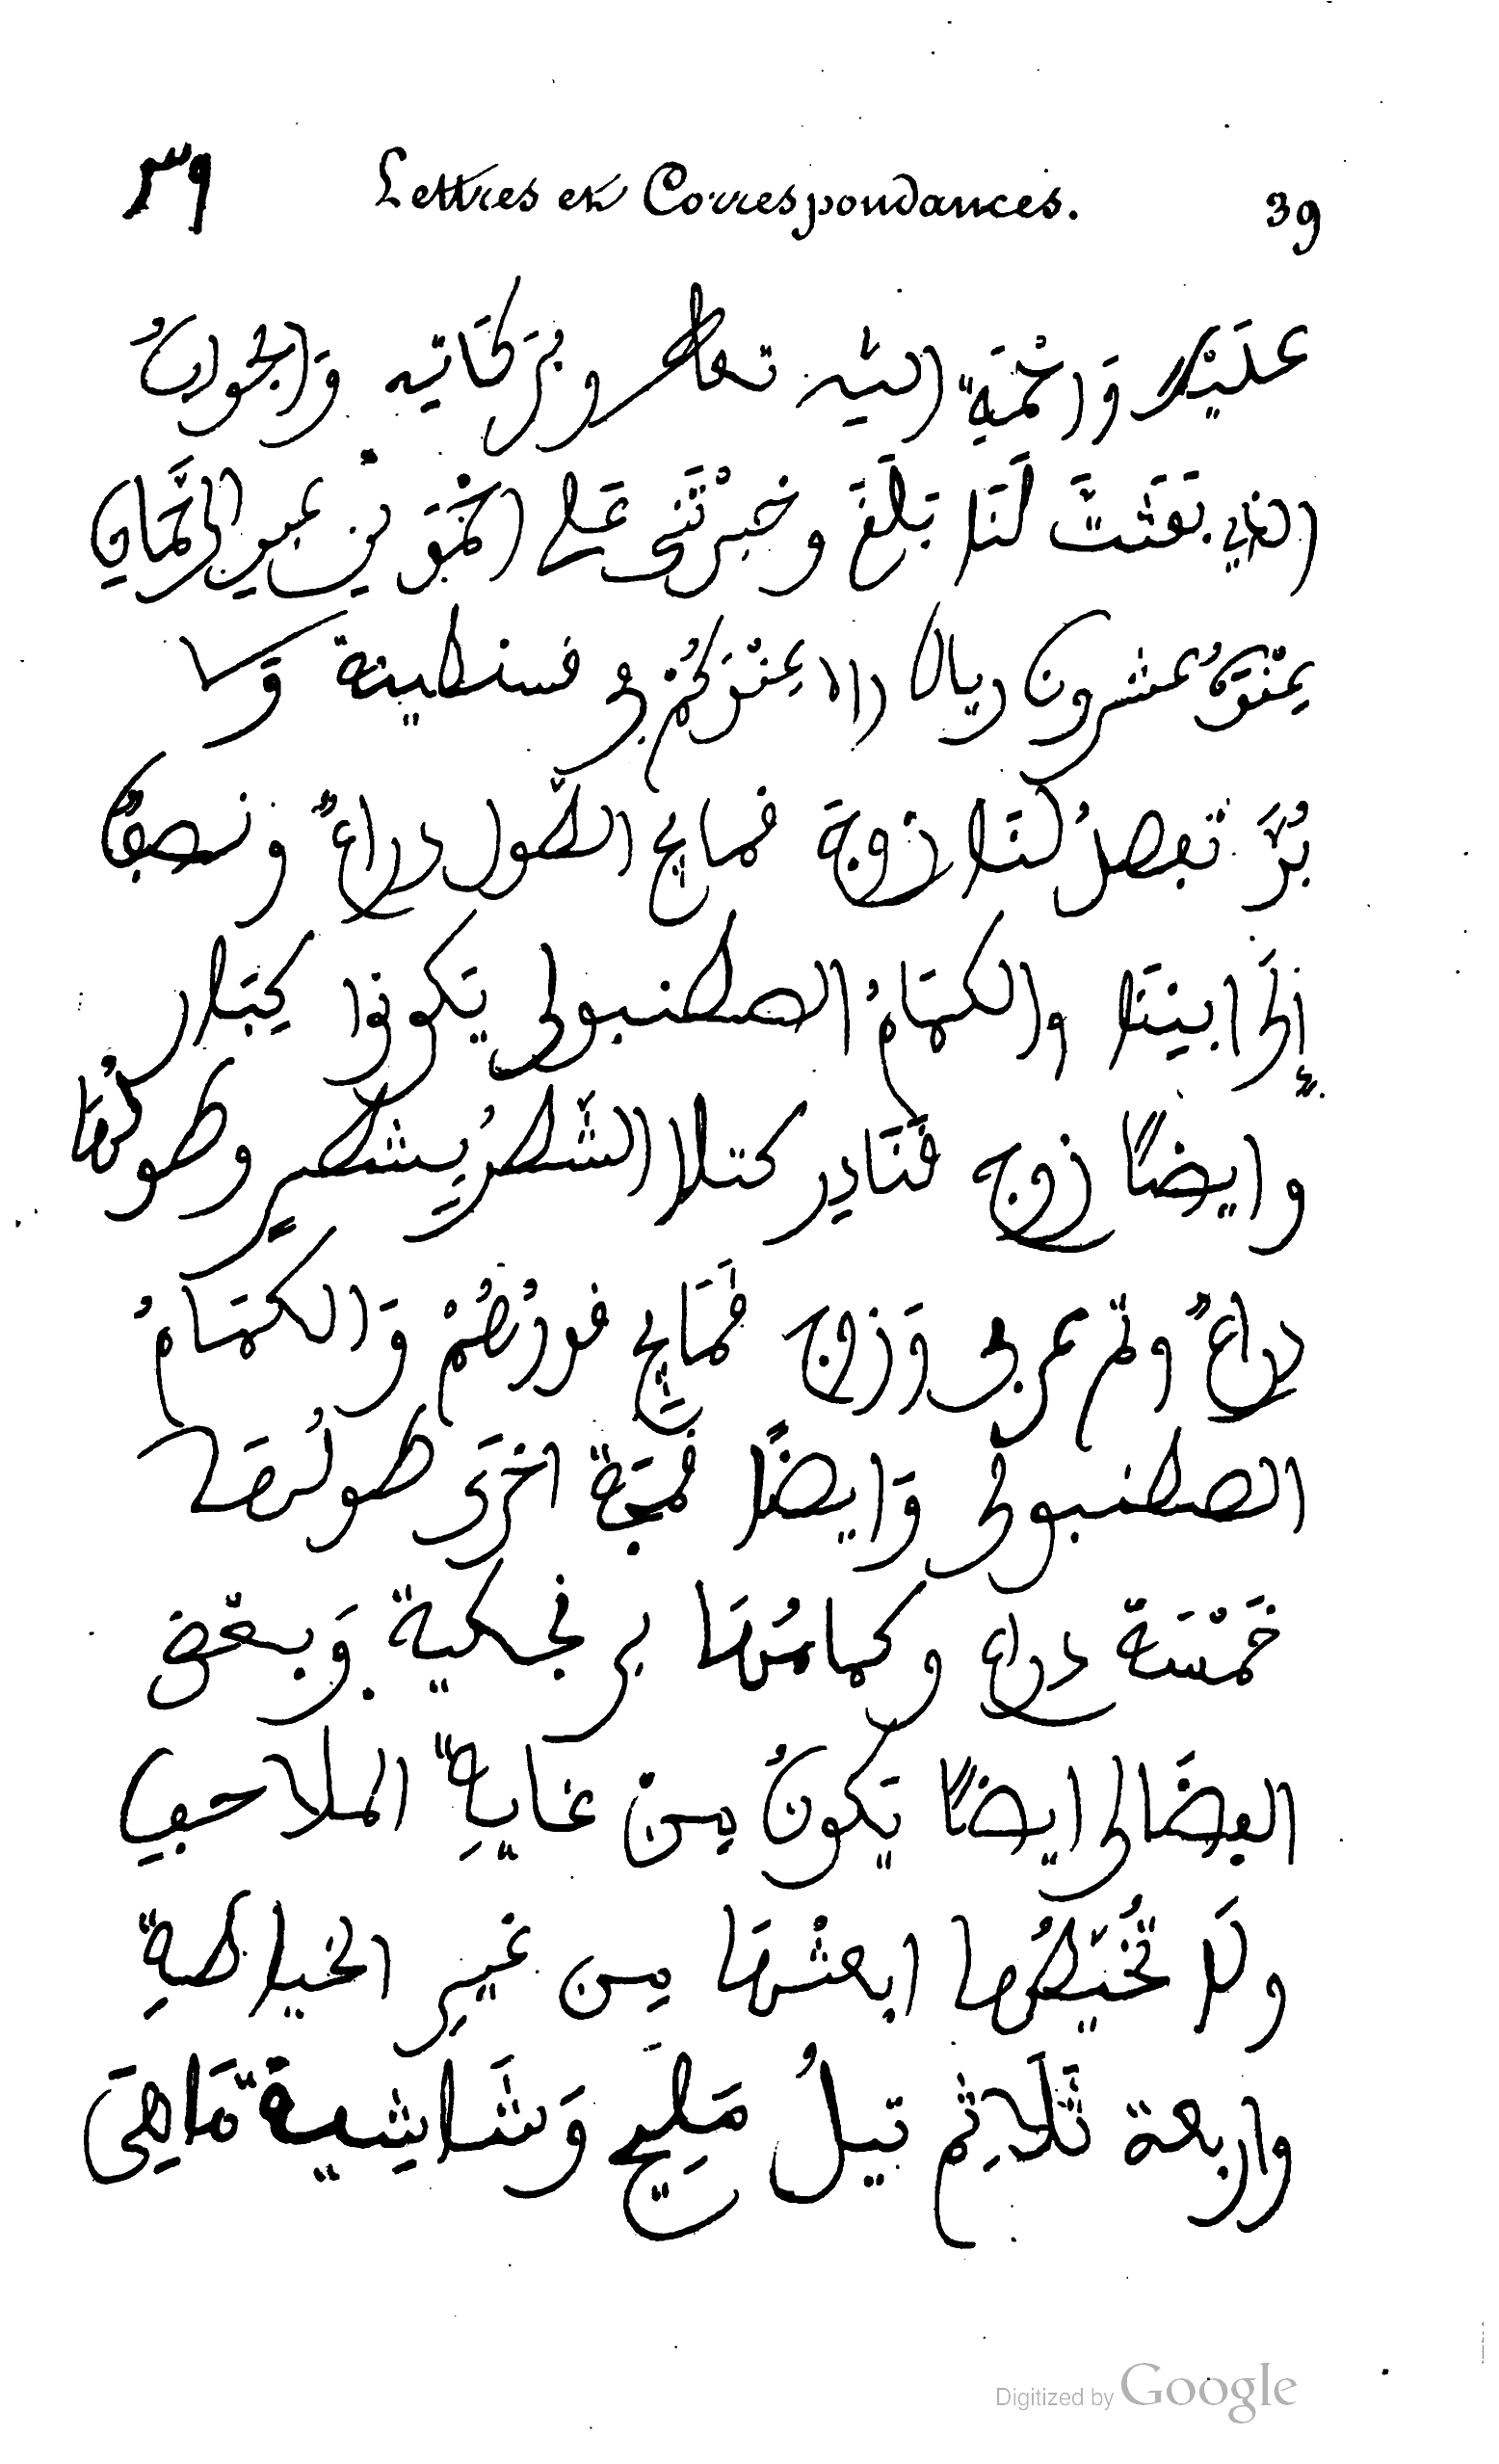 ٣٩ Lettres et Correspondances. 39
عَلَيْك وَ احْمَةِ اللّٰه تعالى وبَرَكَاتِه وَالجوابُ
الذي بَعَثتَ لَنَا بَلَغَ وخبرْتَنى عَلى
عِنْدَكُ عشرون ريالا عِنْدَكُمْ فى قسنطينة
تبصلُ لنَا زوجَ فمايج الطّول دراعً ونصبًا
إلَى ابينَا والكمَامُ الصطنبولى يَكونوا كِبَار
وايضًا زوج قَنَادِر كتلا الشّطرُ بِشطرٍ وطولُهَا
دراعً وثم عربى وَزوج فْمَايج فورْصُمْ وَالكمَامُ
الصطنبولى وَايضًا فْمَجّة اخرَى طولُهَا
خَمْسَة دراع وكمامُهَا برنجكية وَبعض
البضَالى ايضًا يَكونُ مِن غايةِ الملاحف
ولَا تُخَيّطُها ابعثْهَا مِن غيرِ الخياطةِ
واربعة ثَلَاثِم تيلُ مَلِيَح وَشَاشِية مَاهِيَ